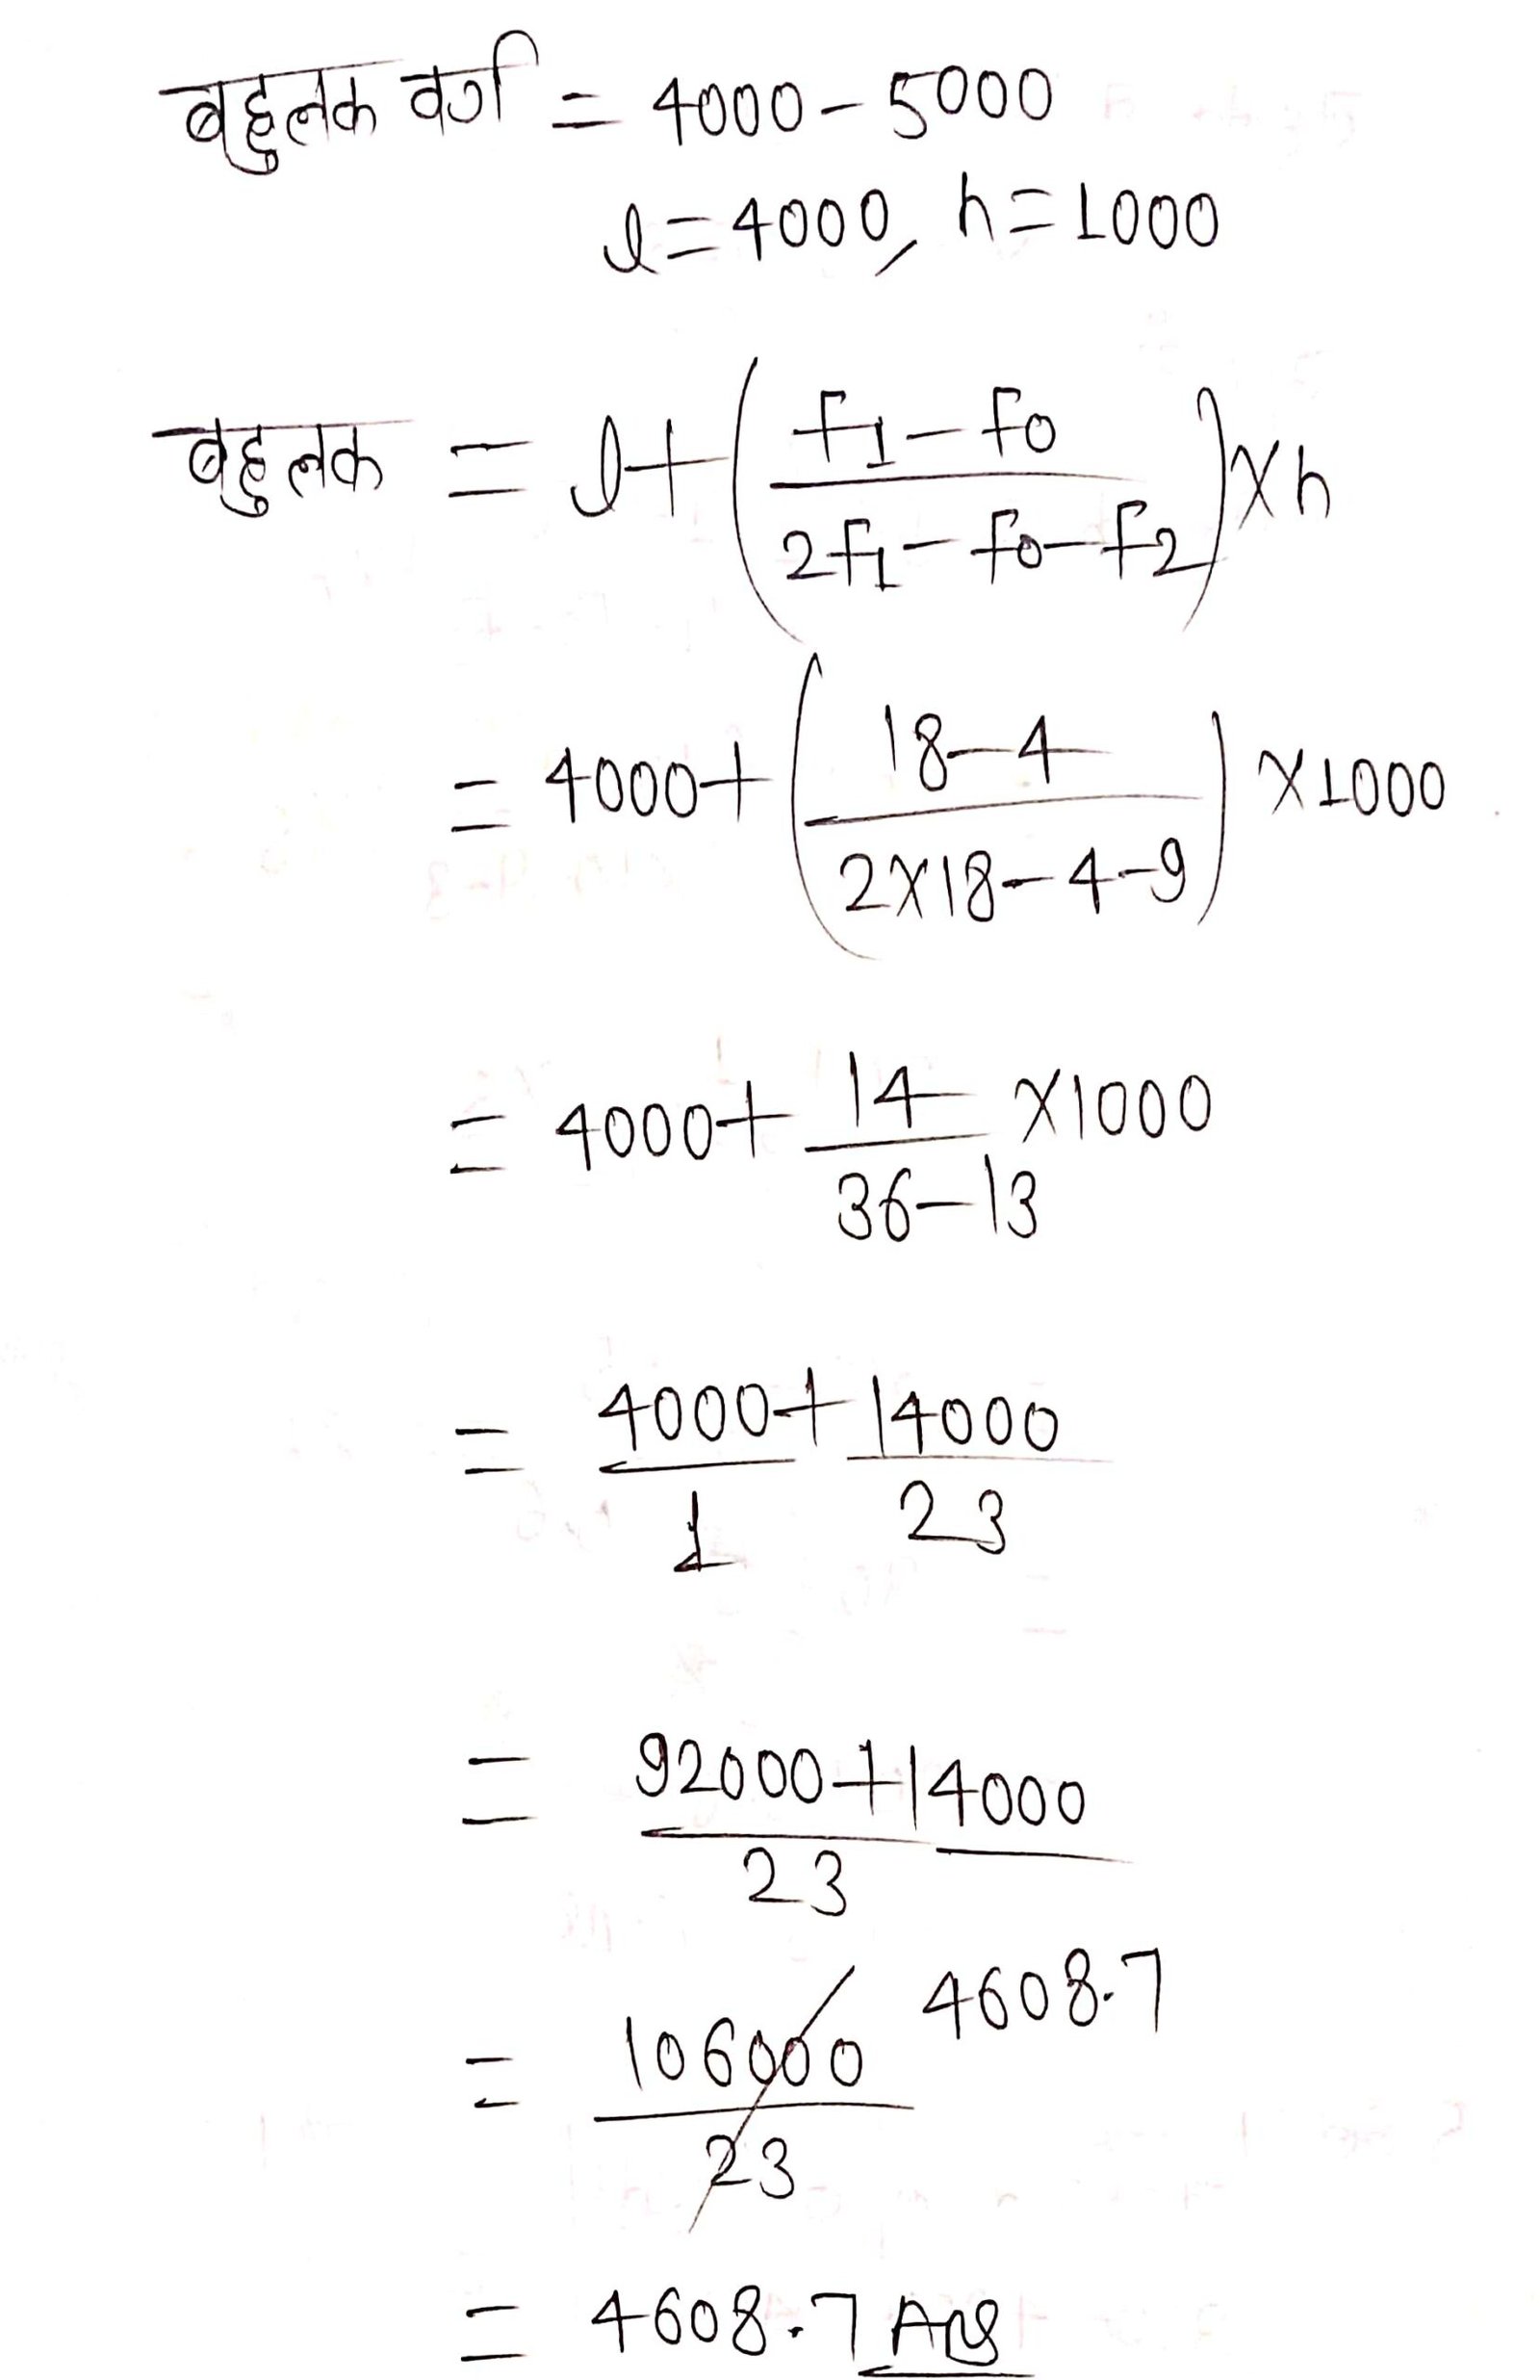 बहुलक वर्ग = 4000 - 5000
l = 4000, h = 1000
बहुलक = l + ( f1 - f0 / 2f1 - f0 - f2 ) × h
= 4000 + ( 18 - 4 / 2×18 - 4 - 9 ) × 1000
= 4000 + 14 / 36 - 13 × 1000
= 4000 / 1 + 14000 / 23
= 92000 + 14000 / 23
= 106000 / 23 4608.7
= 4608.7 Ans